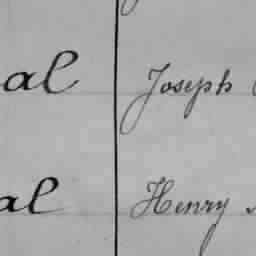 al Joseph
al Henry